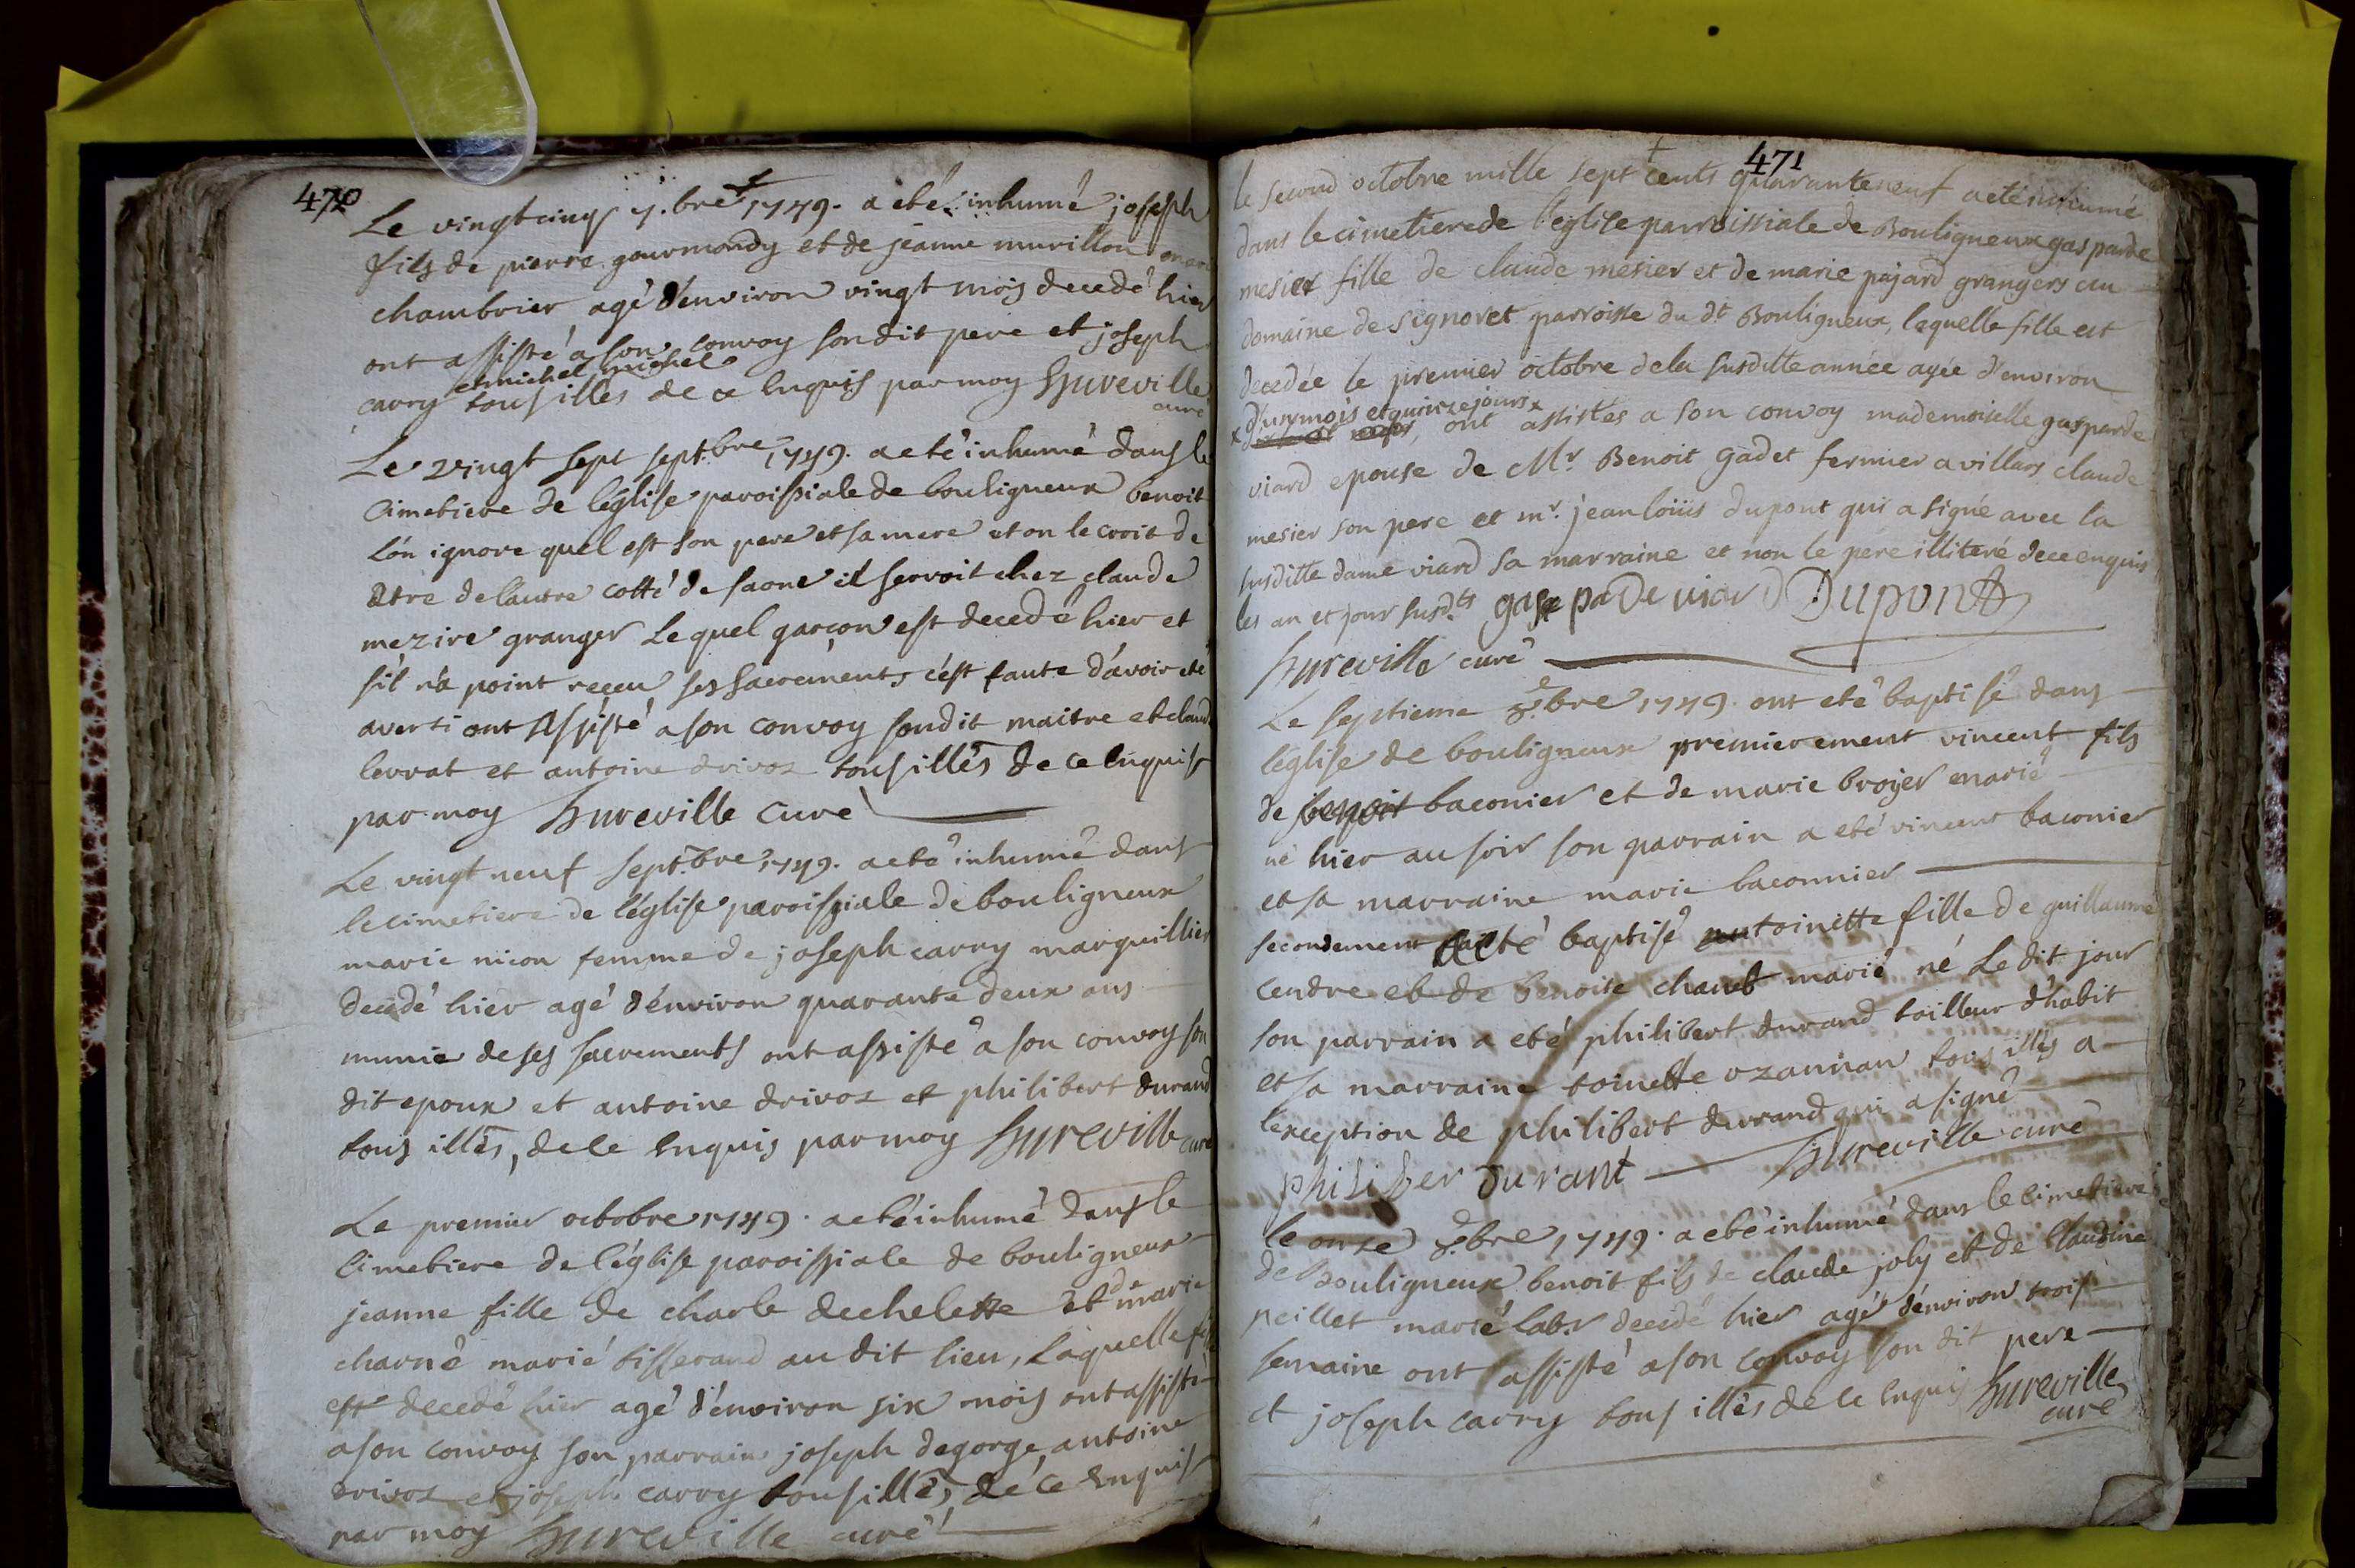 470
Le vingtcinq 7.bre 1749. a eté inhumé joseph
fils de pierre gourmandy et de jeanne murillon
chambrier agé d'environ vingt mois decedé hier
ont assisté a son convoy son dit pere et joseph
et michel michel
carry tous illes de ce enquis par moy hureville
curé
Le vingt sept sept.bre 1749. a eté inhumé dans le
cimetiere de l'église paroissiale de bouligneux benoit
l'ón ignore quel est son pere et sa mere et on le croit de
être de lautre cotté de saone il servoit chez claude
mezire granger Lequel garcon est decedé hier et
s'il n'a point receu ses sacrements c'est faute d'avoir eté
averti ont assisté a son convoy son dit maitre et claud
levrat et antoine drivos tous illés de ce enquis
par moy hureville curé
Le vingt neuf sept.bre 1749. a eté inhumé dans
le cimetiere de l'église paroissiale de bouligneux
marie nicou femme de joseph carry marguillier
decedé hier agé d'environ quarante deux ans
munie de ses sacrements ont assisté a son convoy son
dit epoux et antoine drivos et philibert durand
tous illés, de ce enquis par moy hureville curé
Le premier octobre 1749. a eté inhumé dans le
cimetiere de l'église paroissiale de bouligneux
jeanne fille de charle dechelette et de marie
charné marié tisserand au dit lieu, laquelle fille
est decedé hier agé d'environ six mois ont assisté
a son convoy son parrain joseph degorge, antoine
drivos et joseph carry tous illés, de ce enquis
par moy hureville curé
471
le second octobre mille sept cents quarante neuf a eté inhumé
dans le cimetiere de l'église parroissiale de Bouligneux gasparde
mesier fille de claude mesier et de marie pajard grangers au
domaine de signoret parroisse du dt Bouligneux, laquelle fille est
decedée le premier octobre dela susditte année agée d'environ
x d'un mois et quinze jours x
ont assistés a son convoy mademoiselle gasparde
viard epouse de Mr Benoit gadet fermier a villars claude
mesier son pere et mr. jean loüis dupont qui a signé avec la
susditte dame viard sa marraine et non le pere illiteré de ce enquis
les an et jour susd.ts gaspade viard Dupont
hureville curé
Le septieme 8.bre 1749. ont eté baptisé dans
l'église de bouligneux premierement vincent fils
de benoit baconier et de marie broyer marié
né hier au soir son parrain a eté vincent baconier
et sa marraine marie baconnier
secondement a eté baptisé antoinette fille de guillaume
cendre et de benoite chanet marié né Le dit jour
son parrain a eté philibert durand tailleur d'habit
et sa marraine toinette ozannan tous illés a
l'exception de philibert durand qui a signé
philiber durant hureville curé
le onze 8.bre 1749. a eté inhumé dans le cimetiere
de Bouligneux benoit fils de claude joly et de Claudine
peillet marié lab.r decedé hier agé d'environ trois
semaine ont assisté a son convoy son dit pere
et joseph carry tous illés de ce enquis hureville
curé